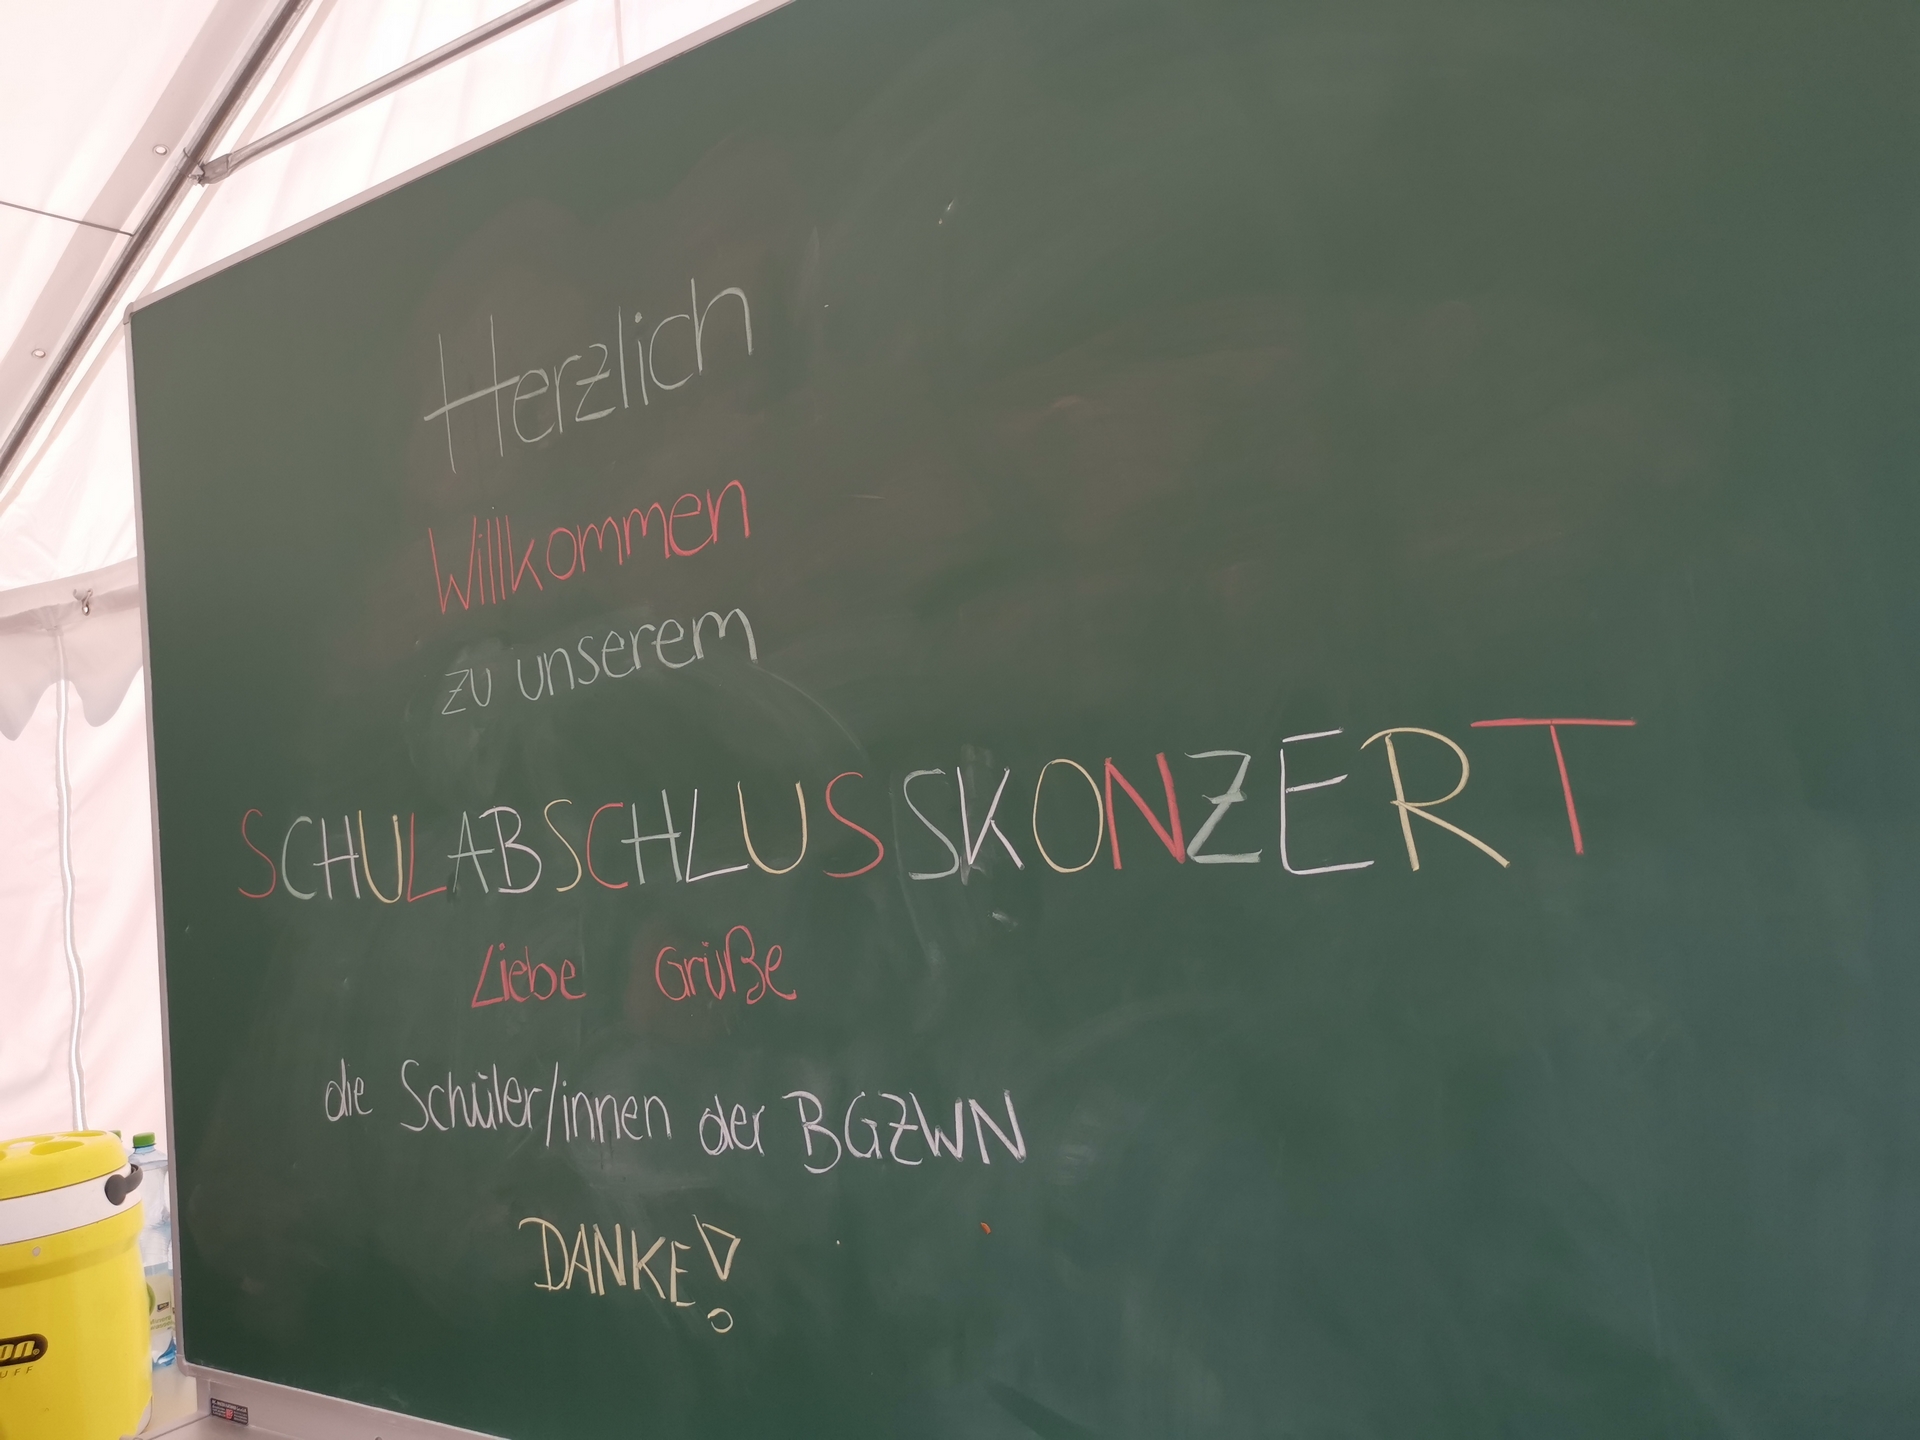 Herzlich
Willkommen
zu unserem
SCHULABSCHLUSSKONZERT
Liebe Grüße
die Schüler/innen der BGZWN
DANKE!
on.
UFF